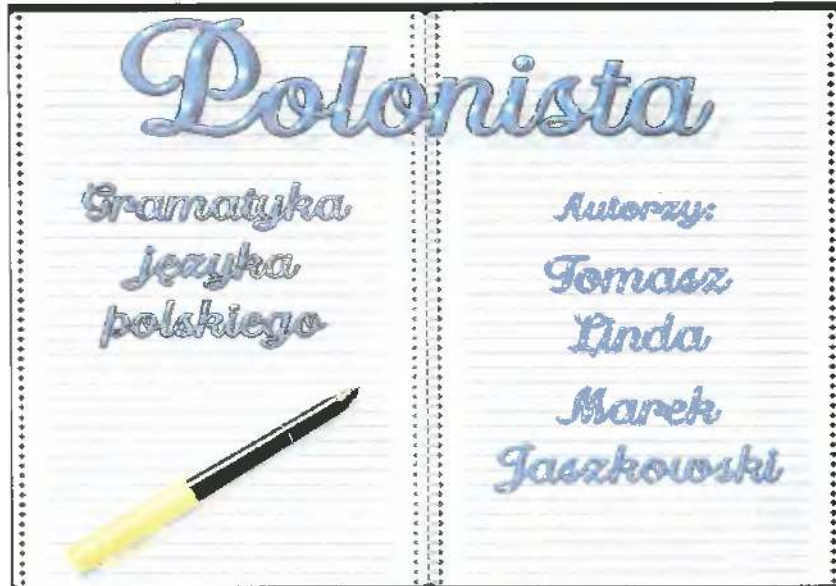 Polonista
Gramatyka
języka
polskiego
Autorzy:
Tomasz
Linda
Marek
Jaszkowski